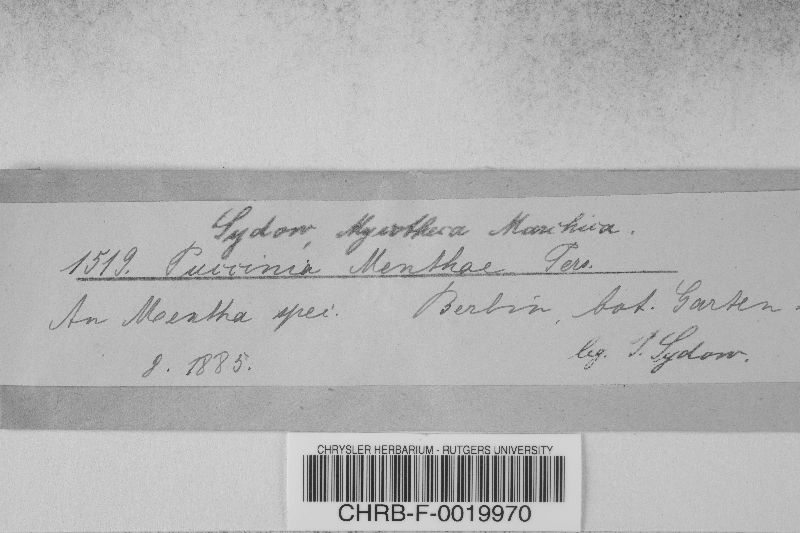 Sydow, Mycotheca Marchica.
1519. Puccinia Menthae Pers.
An Mentha spec. Berlin, bot. Garten.
8. 1885. leg. P. Sydow.
CHRYSLER HERBARIUM - RUTGERS UNIVERSITY
CHRB-F-0019970